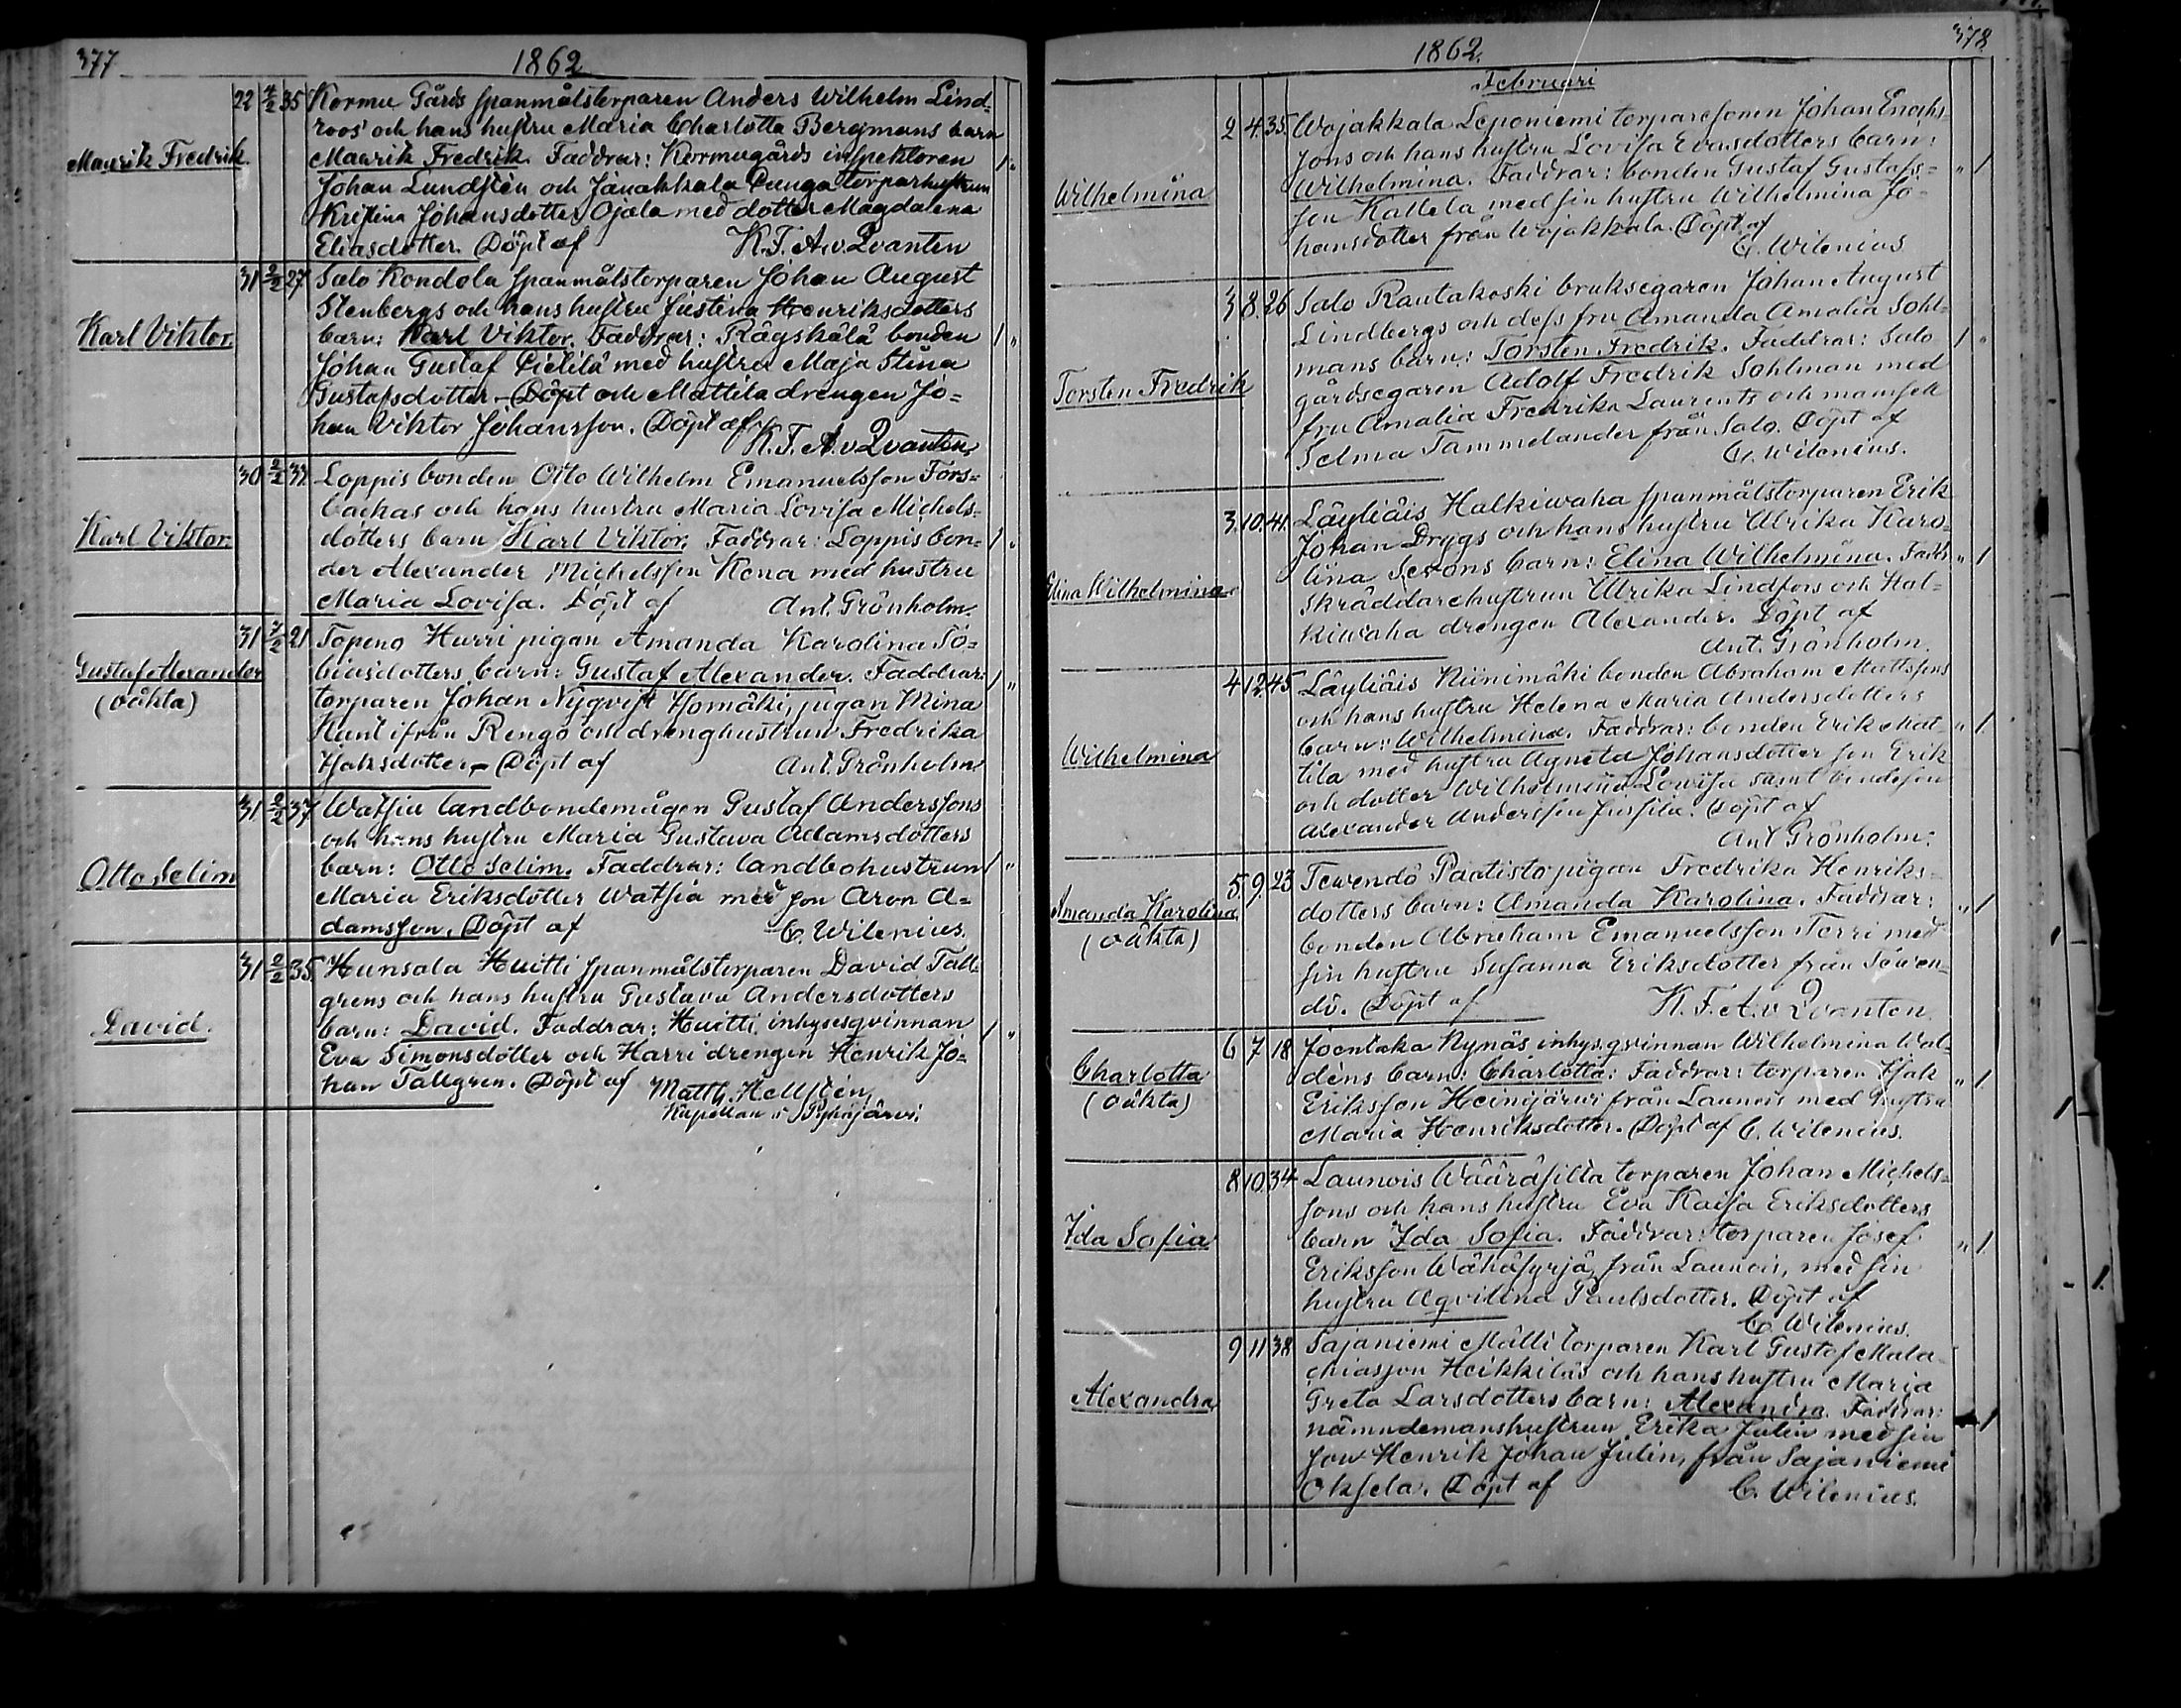 377
1862
22 4/2 35 Kormu Gårds spanmålstorparen Anders Wilhelm Lind-
roos' och hans hustru Maria Charlotta Bergmans barn
Maurik Fredrik
Maurik Fredrik. Faddrar: Kormugårds inspektoren 1 "
Johan Lundstén och Janakkala Punga torparhustrun
Kristina Johansdotter Ojala med dotter Magdalena
Eliasdotter. Döpt af K. F. A. v. Qvanten
31 2/2 27 Salo Kondola spanmålstorparen Johan August
Stenbergs och hans hustru Justina Henriksdotters
Karl Viktor.
barn: Karl Viktor. Faddrar: Rågskälä bonden 1 "
Johan Gustaf Pietilä med hustru Maja Stina
Gustafsdotter – Döpt och Mattila drengen Jo=
han Viktor Johansson. Döpt af
K. F. A. v Qvanten
30 2/2 37 Loppis bonden Otto Wilhelm Emanuelsson Fors=
backas och hans hustru Maria Lovisa Michels-
Karl Viktor.
dotters barn Karl Viktor. Faddrar: Loppis bon- 1 "
der Alexander Michelsson Kena med hustru
Maria Lovisa. Döpt af Ant. Grönholm.
31 7/2 21 Topeno Hurri pigan Amanda Karolina To=
Gustaf Alexander
biasdotters barn: Gustaf Alexander. Faddrar: 1 "
(oäkta)
torparen Johan Nyqvist Isomäki, pigan Mina
Kant ifrån Rengo och drenghustrun Fredrika
Isaksdotter – Döpt af Ant. Grönholm
31 2/2 37 Watsia landbondemågen Gustaf Anderssons
och hans hustru Maria Gustava Adamsdotters
Otto Selim
barn: Otto Selim. Faddrar: landbohustrun 1 "
Maria Eriksdotter Watsia med son Aron A=
damsson. Döpt af C. Wilenius.
31 2/2 35. Hunsala Huitti spanmålstorparen David Tall-
grens och hans hustru Gustava Andersdotters
David.
barn: David. Faddrar: Huitti inhysesqvinnan 1 "
Eva Simonsdotter och Harri drengen Henrik Jo=
han Tallgren. Döpt af Matth. Hellstén,
Kapellan i Pyhäjärvi.
378
1862.
Februari
2 4. 35. Wojakkala Leponiemi torparesonen Johan Enoks-
sons och hans hustru Lovisa Evasdotters barn:
Wilhelmina
Wilhelmina. Faddrar: bonden Gustaf Gustafs= " 1
son Kallela med sin hustru Wilhelmina Jo-
hansdotter från Wojakkala. Döpt af
C. Wilenius
3 8. 26 Salo Rautakoski bruksegaren Johan August
Lindbergs och dess fru Amanda Amalia Sohl-
mans barn: Torsten Fredrik. Faddrar: Salo 1 "
Torsten Fredrik
gårdsegaren Adolf Fredrik Sohlman med
fru Amalia Fredrika Laurents och mamsell
Selma Tammelander från Salo. Döpt af
C. Wilenius.
3. 10. 41. Läyliäis Halkiwaha spanmålstorparen Erik
Johan Drygs och hans hustru Ulrika Karo-
lina Serons barn: Elina Wilhelmina. Fadd: " 1
Elina Wilhelmina
skräddarehustrun Ulrika Lindfors och Hal-
kiwaha drengen Alexander. Döpt af
Ant. Grönholm.
4 12 45 Läyliäis Niinimäki bonden Abraham Mattssons
och hans hustru Helena Maria Andersdotters
barn: Wilhelmina. Faddrar: bonden Erik Mat- " 1
Wilhelmina
tila med hustru Agneta Johansdotter son Erik
och dotter Wilhelmina Lovisa samt bondeson
Alexander Andersson Jussila. Döpt af
Ant Grönholm.
5. 9. 23 Tewendö Paatisto pigan Fredrika Henriks-
Amanda Karolina
dotters barn: Amanda Karolina. Faddrar: " 1
(oäkta)
bonden Abraham Emanuelsson Terri med
sin hustru Susanna Eriksdotter från Tewen-
dö. Döpt af K. F. A. v Qvanten.
6 7 18 Joentaka Nynäs inhys.qvinnan Wilhelmina Wal-
Charlotta
déns barn: Charlotta: Faddrar: torparen Isak " 1
(oäkta)
Eriksson Heinijärwi från Launois med hustru
Maria Henriksdotter. Döpt af C. Wilenius.
8 10. 34 Launois Wääräsilta torparen Johan Michels=
sons och hans hustru Eva Kaisa Eriksdotters
Ida Sofia
barn Ida Sofia. Faddrar: torparen Josef " 1
Eriksson Wähäsyrjä från Launois, med sin
hustru Aqvilina Paulsdotter. Döpt af
C. Wilenius.
9 11 38 Sajaniemi Mälli torparen Karl Gustaf Mala-
chiasson Heikkiläs och hans hustru Maria
Alexandra
Greta Larsdotters barn: Alexandra. Faddrar:
nämndemanshustrun Erika Julin med sin 1
son Henrik Johan Julin, från Sajaniemi
Oksela. Döpt af C. Wilenius.